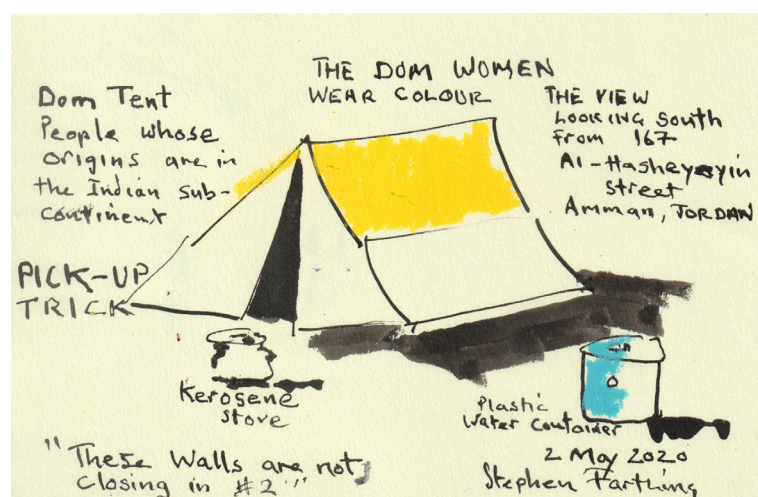 THE DOM WOMEN
WEAR COLOUR
Dom Tent
People whose
origins are in
the Indian sub-
continent
THE VIEW
LOOKING South
From 167
Al-Hasheyyin
Street
Amman, JORDAN
PICK-UP
TRICK
Kerosene
Stove
Plastic
Water Container
"These Walls are not
closing in #2"
2 May 2020
Stephen Farthing